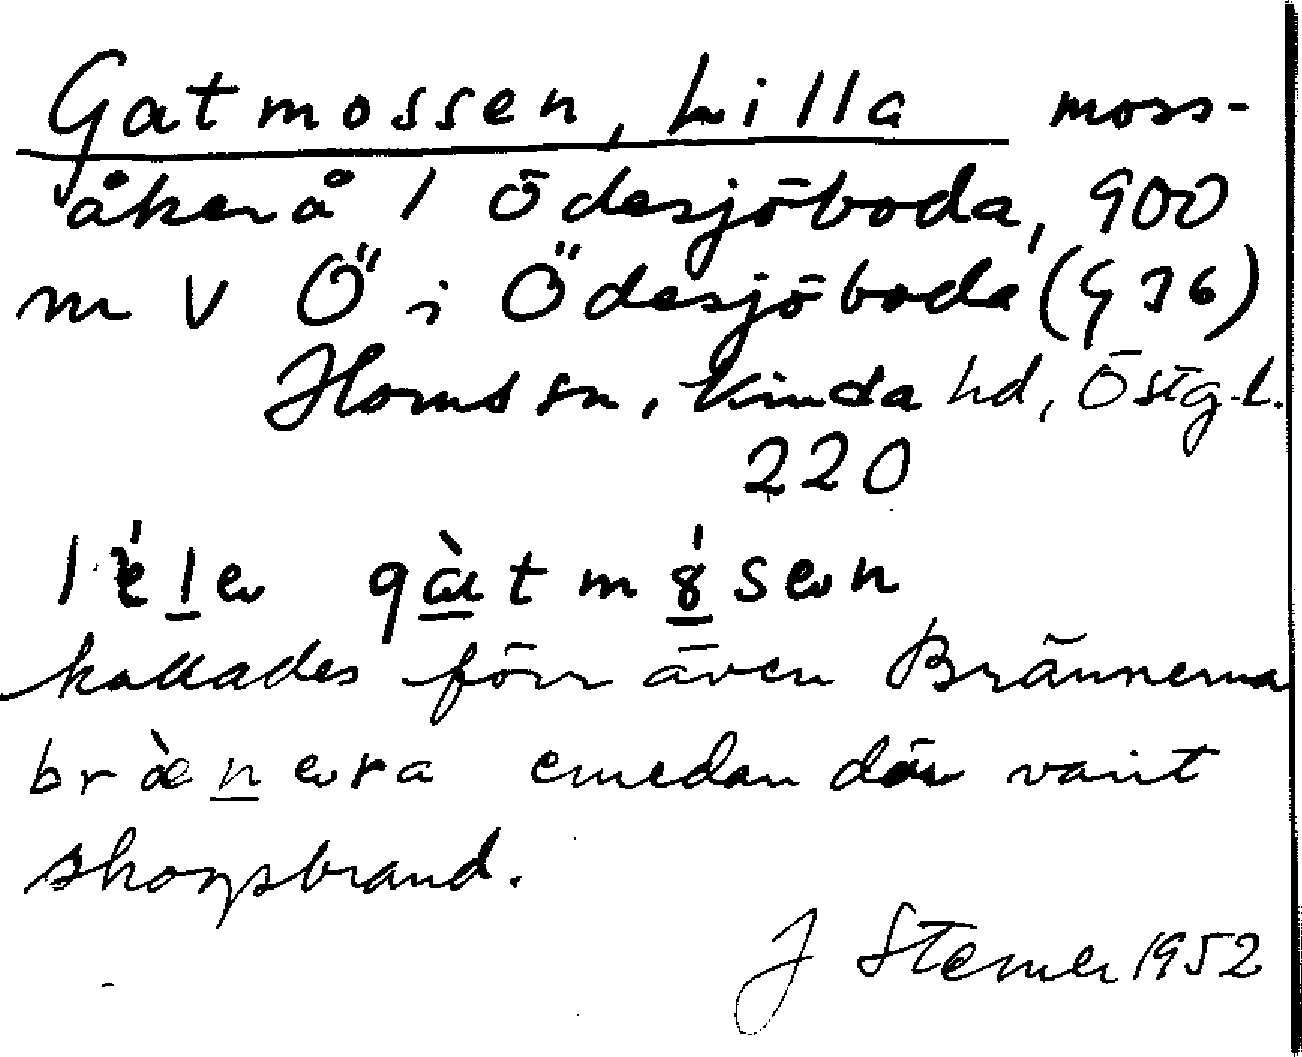 Gatmossen, Lilla moss-
åker å 1 Ödesjöboda, 900
m V Ö i Ödesjöboda (G 36)
Horns sn, Kinda hd, Östg.l.
220
kallades förr även Brännerna
emedan där varit
skogsbrand.
J Stemer 1952